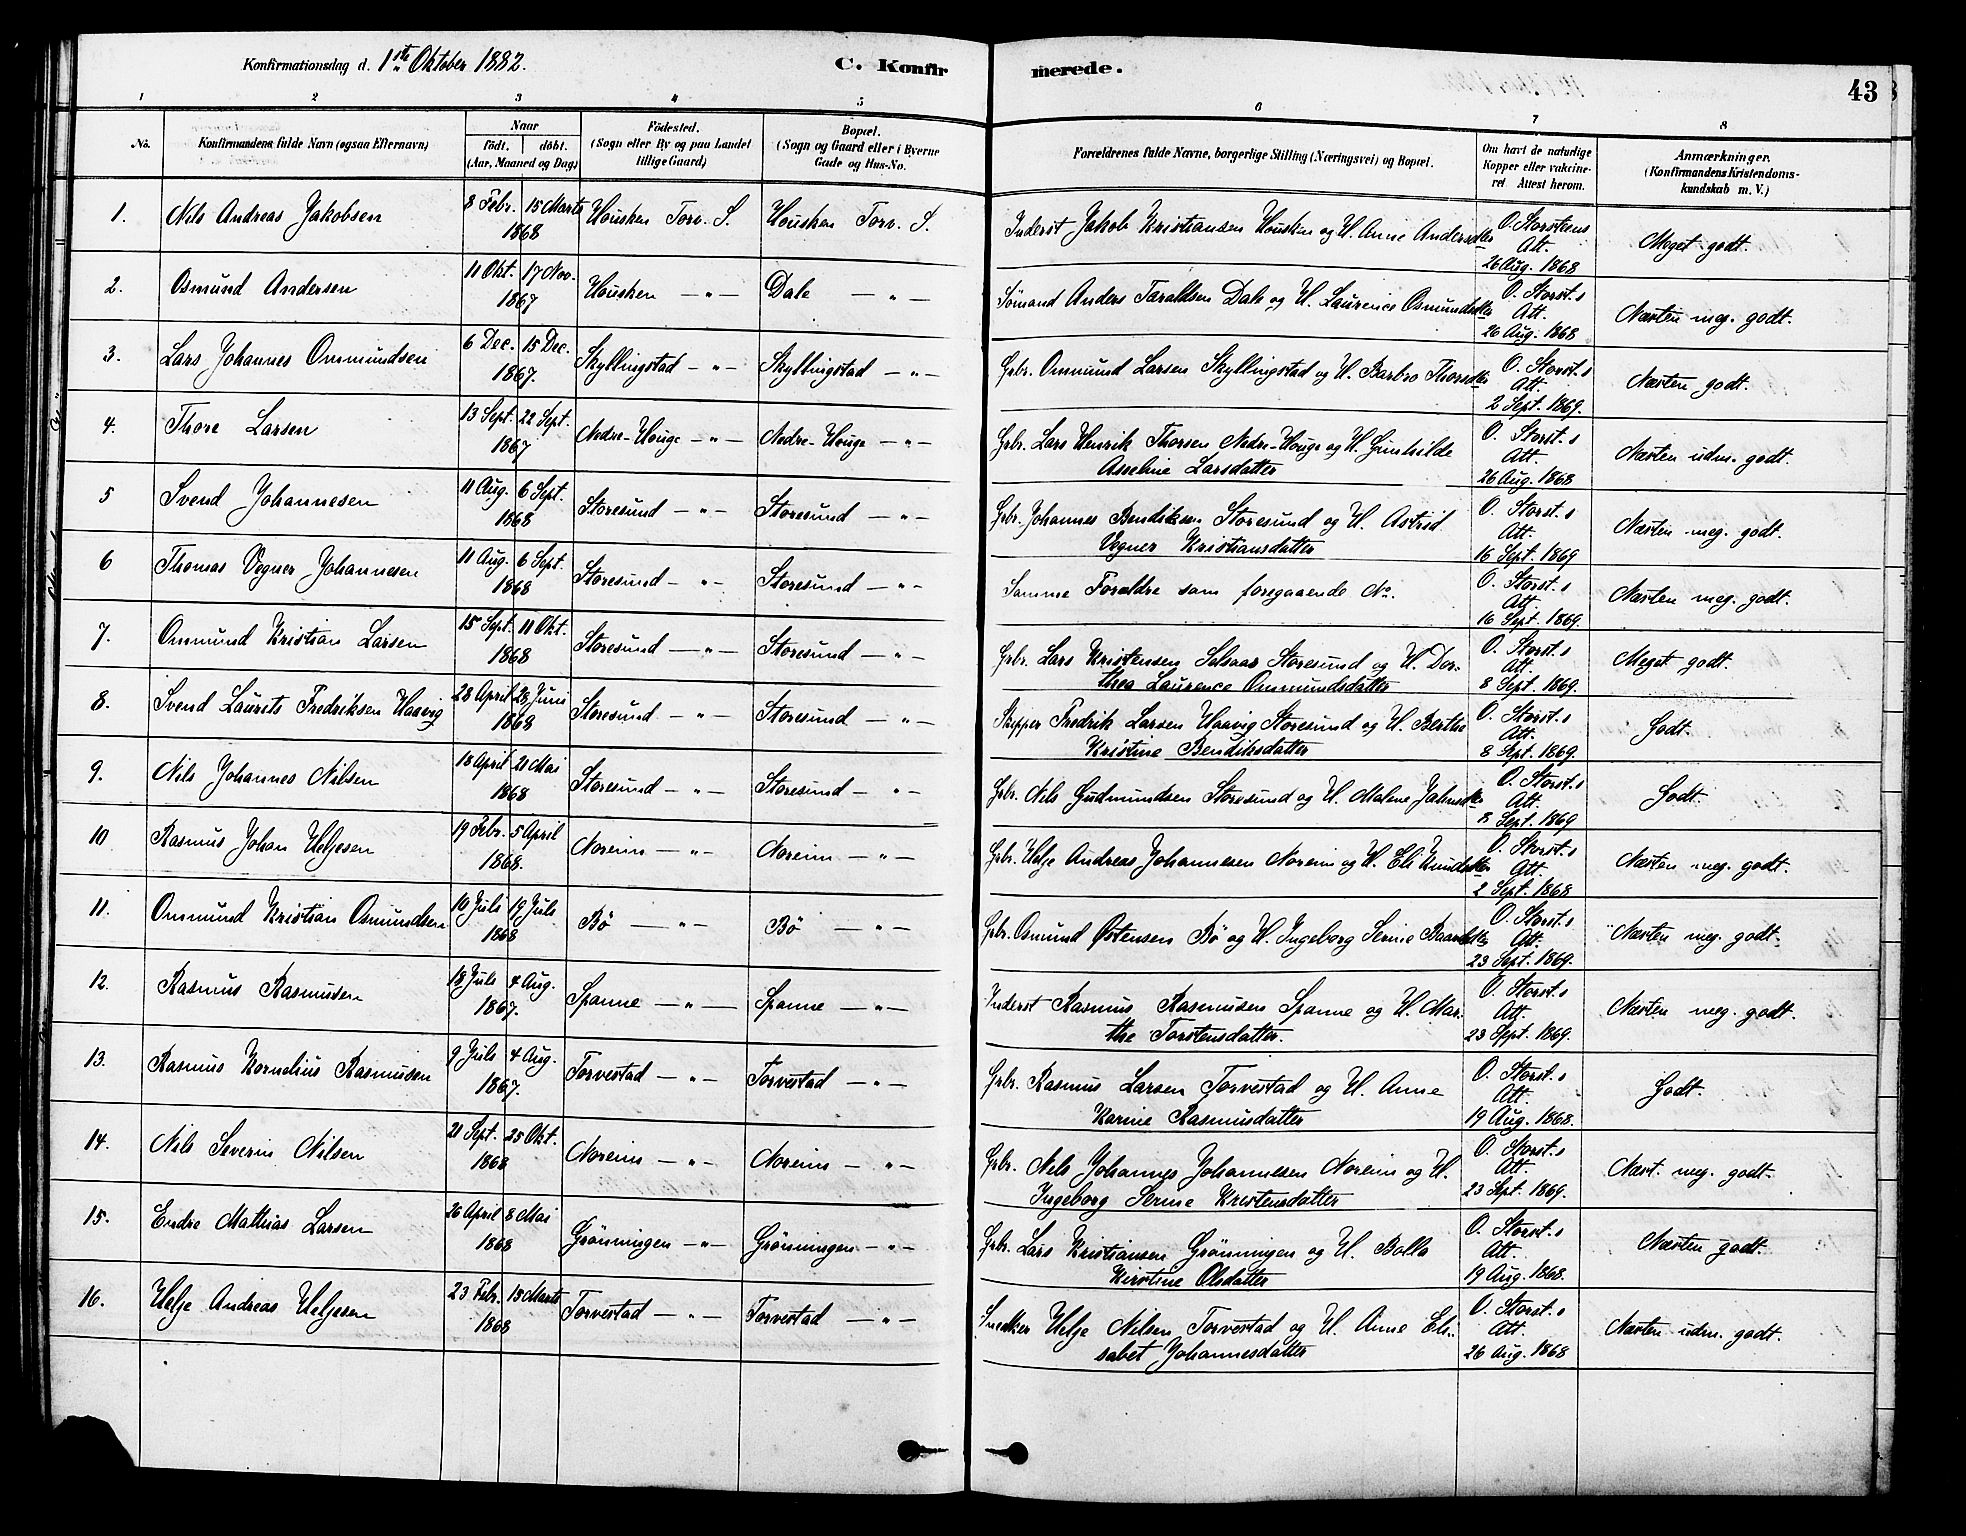 Konfirmationsdag d. 1ste Oktober 1882.
C. Konfirmerede.
43
1 2 3 4 5 6 7 8
No. Konfirmandens fulde Navn (ogsaa Efternavn) Naar födt. döbt. (Aar, Maaned og Dag) Födested. (Sogn eller By og paa Landet tillige Gaard) Bopæl. (Sogn og Gaard eller i Byerne Gade og Hus-No. Forældrenes fulde Navne, borgerlige Stilling (Næringsvei) og Bopæl. Om havt de naturlige Kopper eller vakcineret Attest herom. Anmærkninger. (Konfirmandens Kristendomskundskab m. V.)
1. Nils Andreas Jakobsen 8 Febr. 15 Marts 1868 Housken Torv. S. Housken Torv. S. Inderst Jakob Kristiansen Housken og H. Anne Andersdtter O. Storstens Att. 26 Aug. 1868 Meget godt.
2. Osmund Andersen 11 Okt. 17 Nov. 1867 Housken — " — Dale — " — Sömand Anders Taraldsen Dale og H. Laurence Osmundsdtter O. Storst.s Att. 26 Aug. 1868 Næsten meg. godt.
3. Lars Johannes Ommundsen 6 Dec. 15 Dec. 1867. Skyllingstad — " — Skyllingstad — " — Grbr. Ommund Larsen Skyllingstad og H. Barbro Thorsdtter O. Storst.s Att. 2 Sept. 1869. Næsten godt.
4. Thore Larsen 13 Sept. 22 Sept. 1867 Nedre-Houge — " — Nedre-Houge — " — Grbr. Lars Henrik Thorsen Nedre-Houge og H. Gunhilde Aseline Larsdatter O. Storst.s Att. 26 Aug. 1868 Næsten udm. godt.
5 Svend Johannesen 11 Aug. 6 Sept. 1868 Storesund — " — Storesund — " — Grbr. Johannes Bendiksen Storesund og H. Astrid Vogner Kristiansdatter O. Storst.s Att. 16 Sept. 1869 Næsten meg. godt.
6 Thomas Vogner Johannesen 11 Aug. 6 Sept. 1868 Storesund — " — Storesund — " — Samme Forældre som foregaaende No. O. Storst.s Att. 16 Sept. 1869. Næsten meg. godt.
7. Ommund Kristian Larsen 15 Sept. 11 Okt. 1868 Storesund — " — Storesund — " — Grbr. Lars Kristensen Storesund og H. Dorthea Laurence Ommundsdatter O. Storst.s Att. 8 Sept. 1869. Meget godt.
8. Svend Laurits Fredriksen Haavig 28 April 28 Juni 1868 Storesund — " — Storesund — " — Skipper Fredrik Larsen Haavig Storesund og H. Berthe Kristine Bendiksdatter O. Storst.s Att. 8 Sept. 1869. Godt.
9. Nils Johannes Nilsen 18 April 21 Mai 1868 Storesund — " — Storesund — " — Grbr. Nils Gudmundsen Storesund og H. Malene O. Storst.s Att. 8 Sept. 1869 Godt.
10 Rasmus Johan Heljesen 19 Febr. 5 April 1868. Noreim — " — Noreim — " — Grbr. Helje Andreas Johannesen Noreim og H. Eli Knudsdtter O. Storst.s Att. 2 Sept. 1868 Næsten meg. godt.
11. Ommund Kristian Osmundsen 10 Juli 19 Juli 1868 Bö — " — Bö — " — Grbr. Osmund Östensen Bö og H. Ingeborg Serine O. Storst.s Att. 23 Sept. 1869. Næsten meg. godt.
12. Rasmus Rasmusen 18 Juli 4 Aug. 1867. Spanne — " — Spanne — " — Inderst Rasmus Rasmusen Spanne og H. Marthe Torstensdatter. O. Storst.s Att. 23 Sept. 1869. Næsten meg. godt.
13. Rasmus Kornelius Rasmusen 9 Juli 4 Aug. 1867. Torvestad — " — Torvestad — " — Grbr. Rasmus Larsen Torvestad og H. Anne Karine Rasmusdatter O. Storst.s Att. 19 Aug. 1868. Godt.
14. Nils Severin Nilsen 21 Sept. 25 Okt. 1868 Noreim — " — Noreim — " — Grbr. Nils Johannes Johannesen Noreim og H. Ingeborg Serine Kristensdatter O. Storst.s Att. 23 Sept. 1869. Næst. meg. godt.
15. Endre Mathias Larsen 26 April 8 Mai 1868 Grönningen — " — Grönningen — " — Grbr. Lars Kristiansen Grönningen og H. Bolla Kirstine Olsdatter O. Storst.s Att. 19 Aug. 1868. Næsten godt.
16. Helje Andreas Heljesen 23 Febr. 15 Marts 1868 Torvestad — " — Torvestad — " — Snedker Helje Nilsen Torvestad og H. Anne Elisabet Johannesdatter O. Storst.s Att. 26 Aug. 1868 Næsten udm. godt.